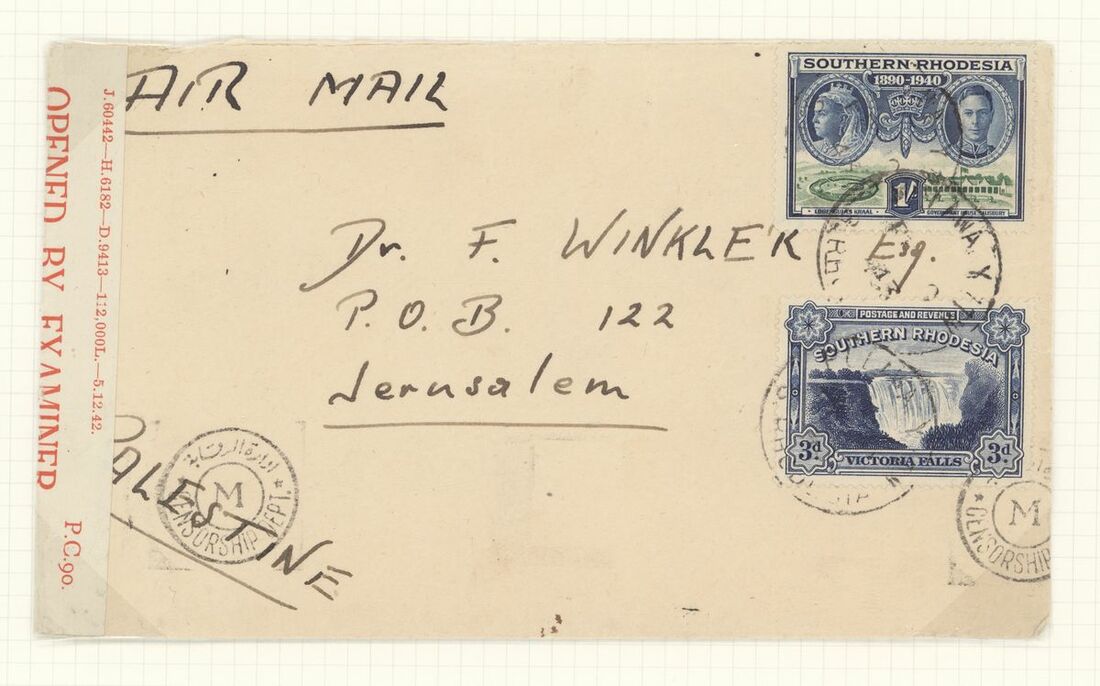 AIR MAIL
Dr. F. WINKLER Esq.
P.O.B. 122
Jerusalem
PALESTINE
OPENED BY EXAMINER
P.C.90.
J.60442—H.6182—D.9413—112,000L.—5.12.42.
SOUTHERN RHODESIA
1890-1940
1/-
LOBENGULA'S KRAAL
GOVERNMENT HOUSE SALISBURY
POSTAGE AND REVENUE
SOUTHERN RHODESIA
3d 3d
VICTORIA FALLS
ادارة الرقابة
M
CENSORSHIP DEPT.
M
CENSORSHIP